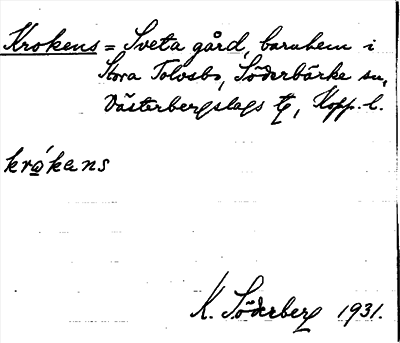 Krokens = Sveta gård, barnhem i
Stora Tolvsbo, Söderbärke sn,
Västerbergslags tg, Kopp. l.
krω´kans
K. Söderberg 1931.